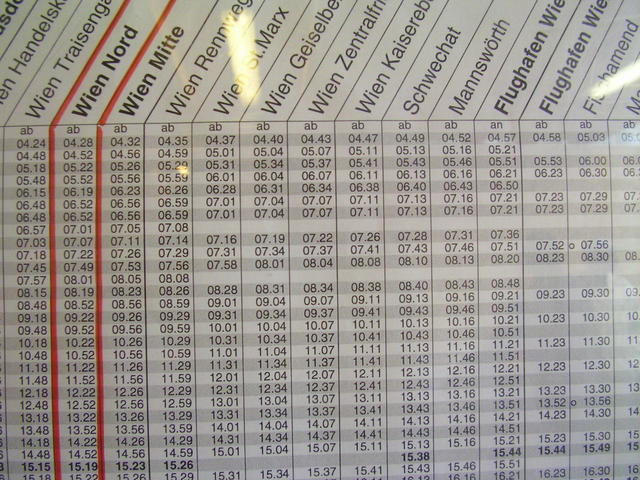 en Handelsk
Wien Traisenga
Wien Nord
Wien Mitte
Wien Rennweg
Wien St. Marx
Wien Geiselbe
Wien Zentralfri
Wien Kaisereb
Schwechat
Mannswörth
Flughafen Wie
Flughafen Wie
Fischamend
ab ab ab ab ab ab ab ab ab ab an ab ab
04.24 04.28 04.32 04.35 04.37 04.40 04.43 04.47 04.49 04.52 04.57 04.58 05.03
04.48 04.52 04.56 04.59 05.01 05.04 05.07 05.11 05.13 05.16 05.21
05.18 05.22 05.26 05.29 05.31 05.34 05.37 05.41 05.43 05.46 05.51 05.53 06.00
05.48 05.52 05.56 05.59 06.01 06.04 06.07 06.11 06.13 06.16 06.21 06.23 06.30
06.15 06.19 06.23 06.26 06.28 06.31 06.34 06.38 06.40 06.43 06.50
06.48 06.52 06.56 06.59 07.01 07.04 07.07 07.11 07.13 07.16 07.21 07.23 07.29
06.48 06.52 06.56 06.59 07.01 07.04 07.07 07.11 07.13 07.16 07.21 07.23 07.29
06.57 07.01 07.05 07.08
07.03 07.07 07.11 07.14 07.16 07.19 07.22 07.26 07.28 07.31 07.36
07.18 07.22 07.26 07.29 07.31 07.34 07.37 07.41 07.43 07.46 07.51 07.52 o 07.56
07.45 07.49 07.53 07.56 07.58 08.01 08.04 08.08 08.10 08.13 08.20 08.23 08.30
07.57 08.01 08.05 08.08
08.15 08.19 08.23 08.26 08.28 08.31 08.34 08.38 08.40 08.43 08.48
08.48 08.52 08.56 08.59 09.01 09.04 09.07 09.11 09.13 09.16 09.21 09.23 09.30
09.18 09.22 09.26 09.29 09.31 09.34 09.37 09.41 09.43 09.46 09.51
09.48 09.52 09.56 09.59 10.01 10.04 10.07 10.11 10.13 10.16 10.21 10.23 10.30
10.18 10.22 10.26 10.29 10.31 10.34 10.37 10.41 10.43 10.46 10.51
10.48 10.52 10.56 10.59 11.01 11.04 11.07 11.11 11.13 11.16 11.21 11.23 11.30
11.18 11.22 11.26 11.29 11.31 11.34 11.37 11.41 11.43 11.46 11.51
11.48 11.52 11.56 11.59 12.01 12.04 12.07 12.11 12.13 12.16 12.21 12.23 12.30
12.18 12.22 12.26 12.29 12.31 12.34 12.37 12.41 12.43 12.46 12.51
12.48 12.52 12.56 12.59 13.01 13.04 13.07 13.11 13.13 13.16 13.21 13.23 13.30
13.18 13.22 13.26 13.29 13.31 13.34 13.37 13.41 13.43 13.46 13.51 13.52 o 13.56
13.48 13.52 13.56 13.59 14.01 14.04 14.07 14.11 14.13 14.16 14.21 14.23 14.30
14.18 14.22 14.26 14.29 14.31 14.34 14.37 14.41 14.43 14.46 14.51
14.48 14.52 14.56 14.59 15.01 15.04 15.07 15.11 15.13 15.16 15.21 15.23 15.30
15.15 15.19 15.23 15.26 15.38 15.44 15.44 15.49
15.18 15.22 15.26 15.29 15.31 15.34 15.37 15.41 15.43 15.46 15.51
16.21 16.23 16.30